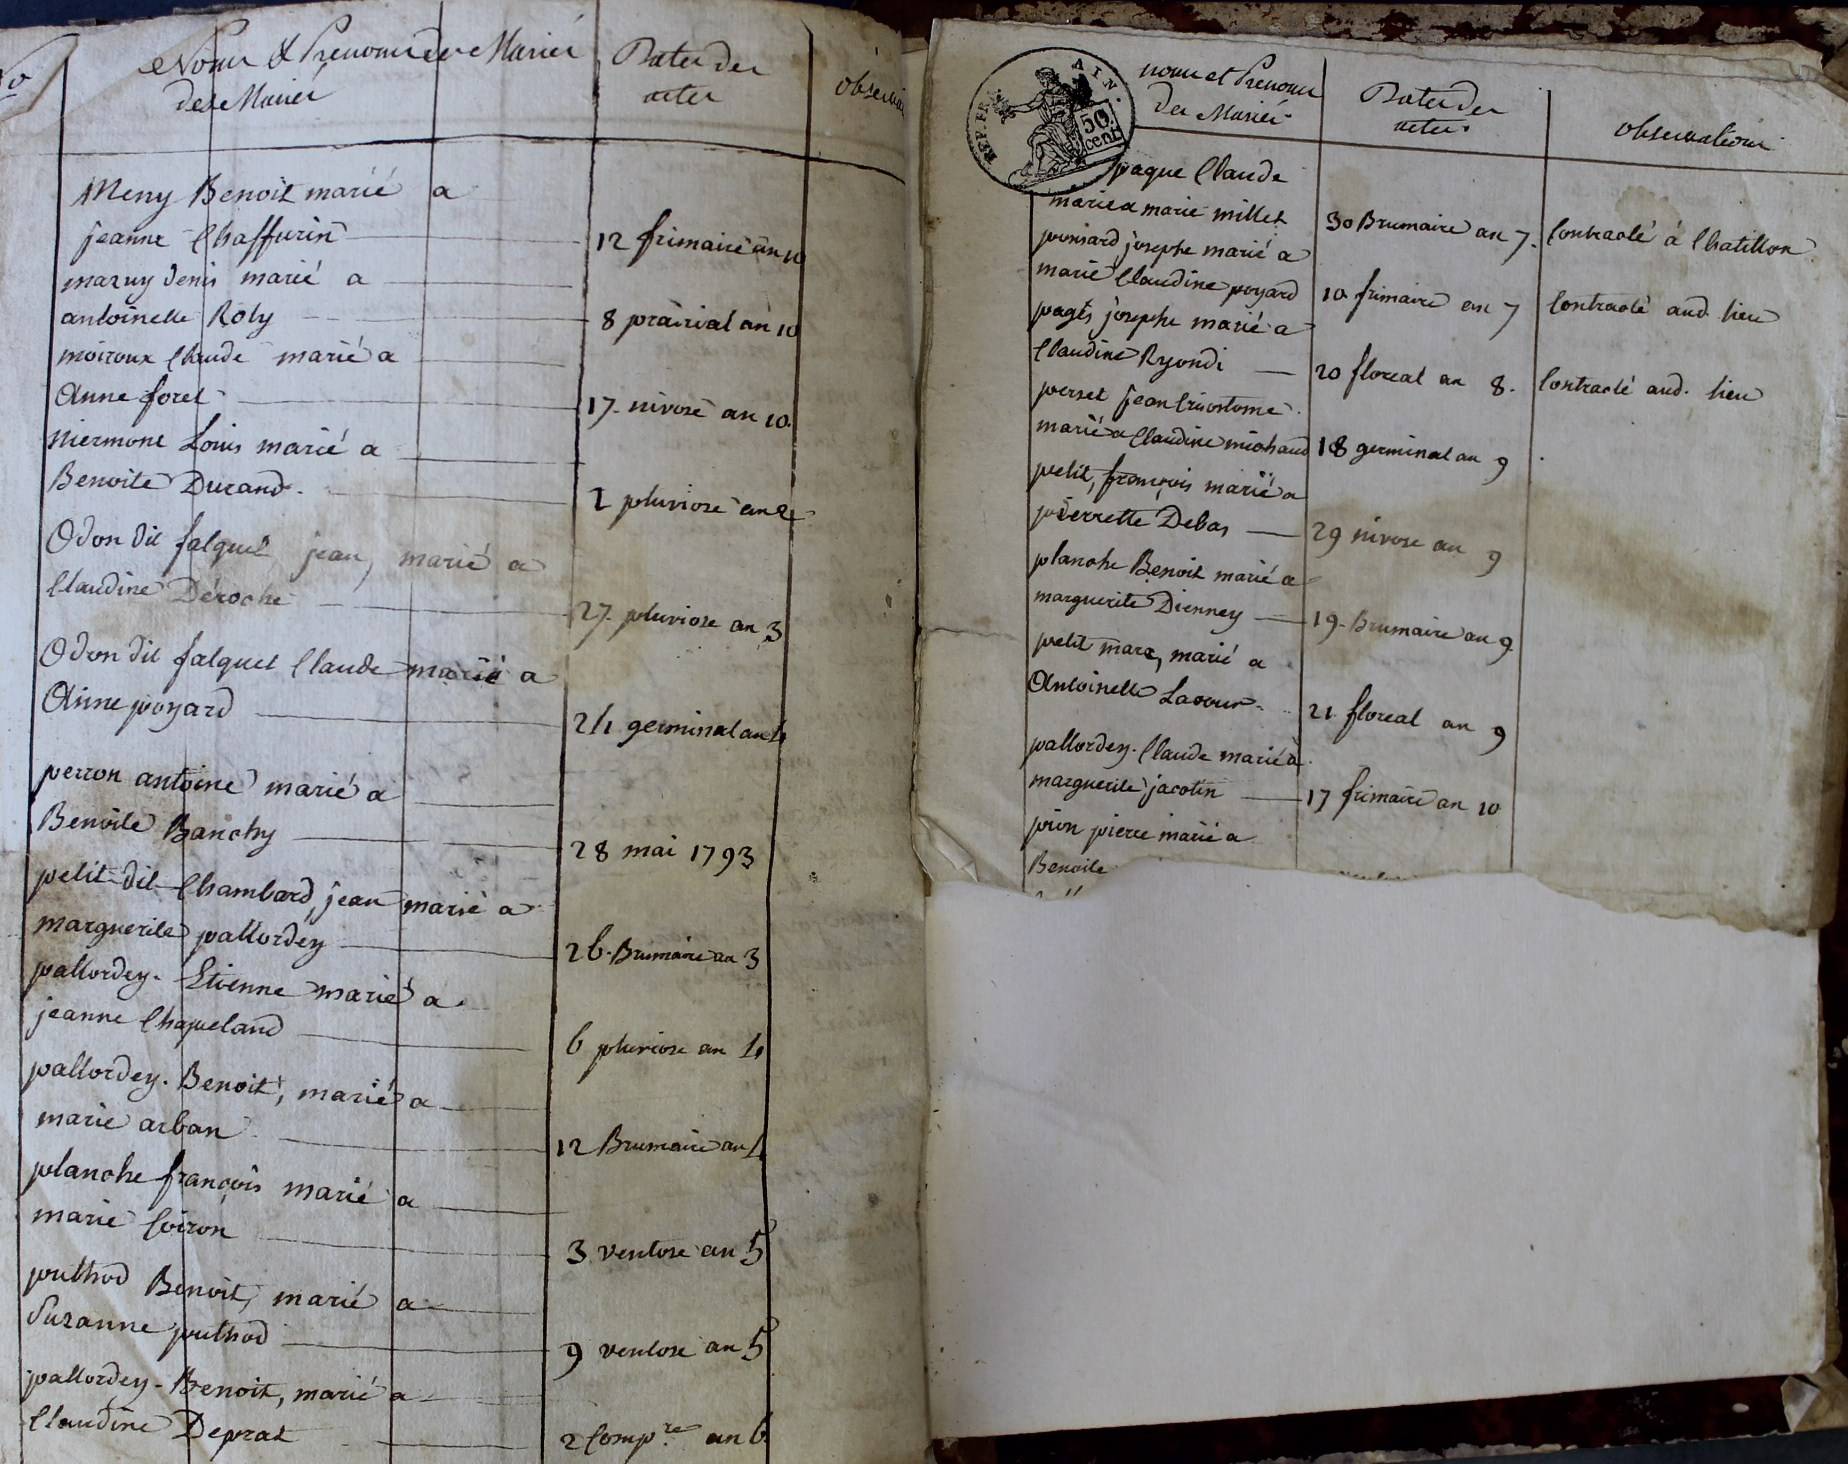 No
Noms & Prenoms des Mariés
des Mariés
Dates des
actes
observa
Meny Benoit marié a
jeanne Chaffurin
12 frimaire an 10
mazuy denis marié a
antoinette Roly
8 prairial an 10
moiroux Claude marié a
Anne foret
17. nivose an 10.
niermont Louis marié a
Benoite Durand.
2 pluviose an 2
Odon dit falquet jean, marié a
Claudine Deroche
27. pluviose an 3
Odon dit falquet Claude marié a
Anne poyard
24 germinal an 4
perron antoine marié a
Benoite Banchy
28 mai 1793
petit dit Chambard, jean marié a
marguerite pallordey
26. Brumaire an 3
pallordey. Etienne marié a.
jeanne Chapeland
6 pluviose an 4
pallordey. Benoit, marié a
marie arban
12 Brumaire an 4
planche françois marié a
marie Coiron
3 ventose an 5
puthod Benoit, marié a
Suzanne puthod
9 ventose an 5
pallordey - Benoit, marié a
Claudine Deprat
2 Compre an 6.
REP. FRA. AIN.
50.
cent
noms et Prenoms
des Mariés
Dates des
actes.
observations
paque Claude
marié a marie millet
30 Brumaire an 7. Contracté à Chatillon
poniard josephe marié a
marie Claudine poyard
10 frimaire an 7 Contracté aud. lieu
pagés josephe marié a
Claudine Ryondi
20 floreal an 8. Contracté aud. lieu
perset jean Crisostome.
marié a Claudine michaud 18 germinal an 9
petit, françois marié a
pierrette Debas
29 nivose an 9
planche Benoit marié a
marguerite Dienney
19. Brumaire an 9
petit marc, marié a
Antoinette Lacour
21 floreal an 9
pallordey. Claude marié a.
marguerite jacotin
17 frimaire an 10
pion pierre marié a
Benoite